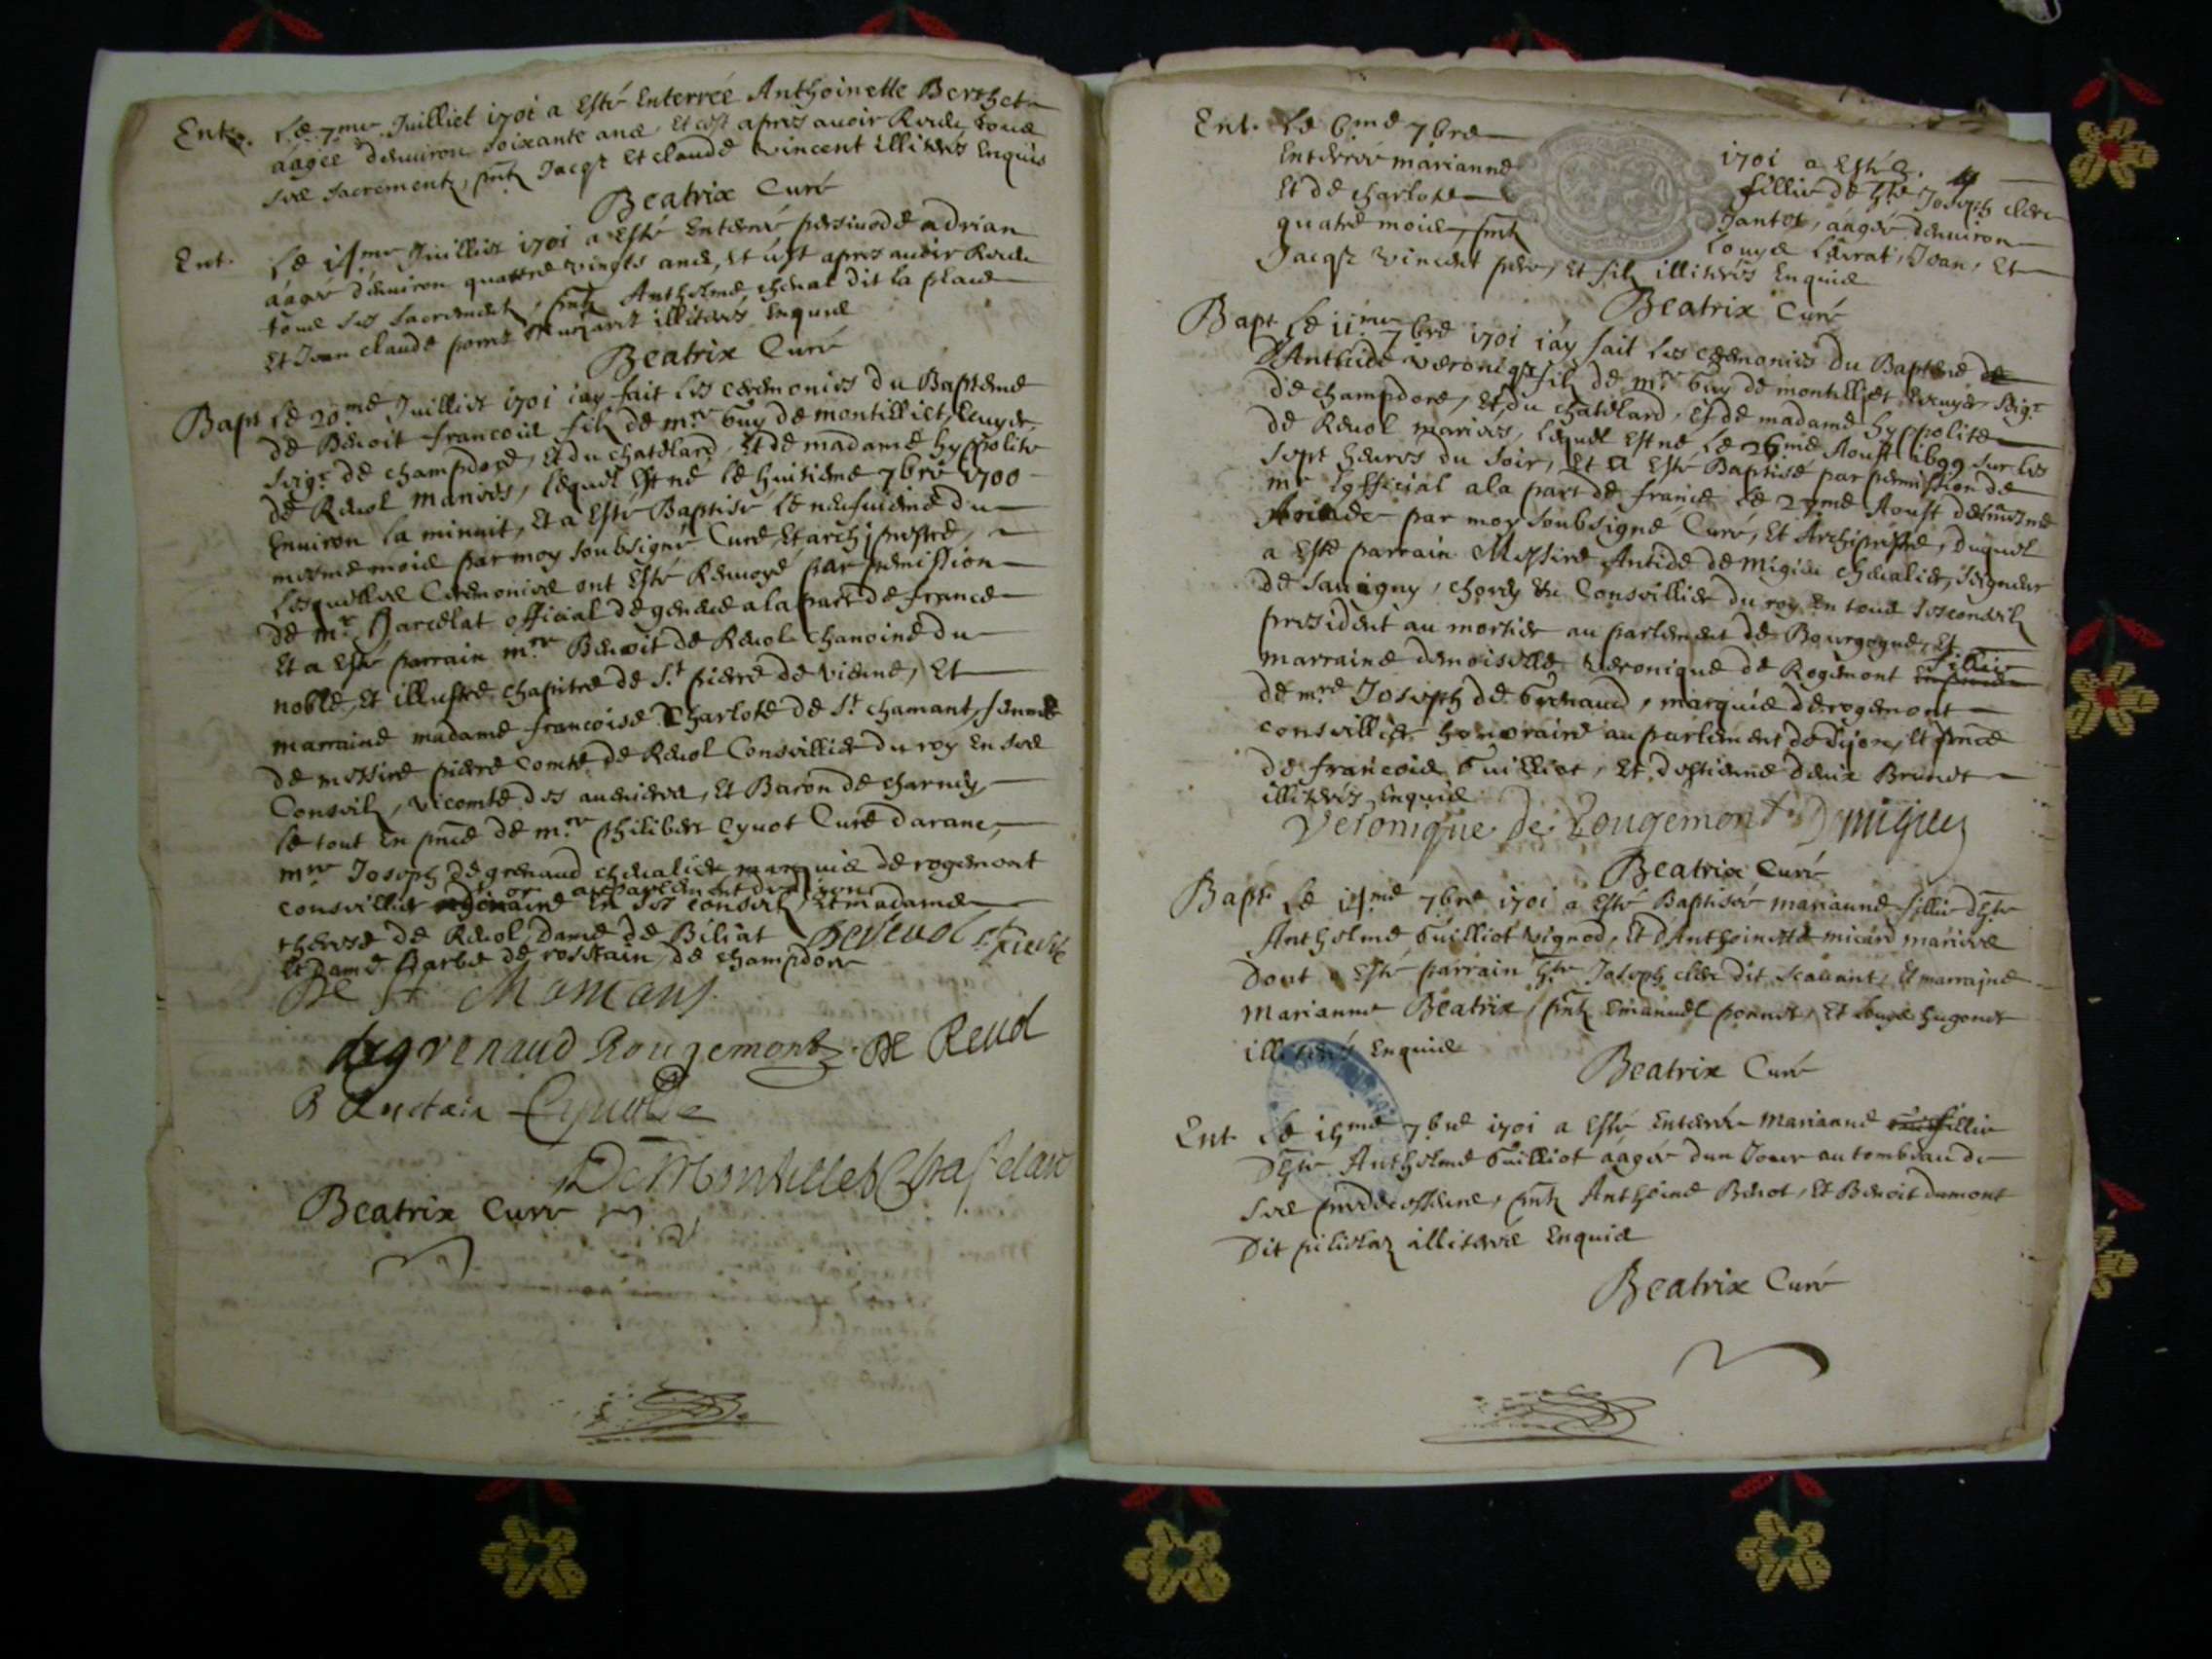 Ent. Le 7me Juilliet 1701 a Esté Enterrée Anthoinette Berthet
aagée denuiron soixante ans, Et cest apres auoir Receu tous
ses sacrements, pntz Jacqz Et claude vincent illiterés Enquis
Beatrix Curé
Ent. Le Juilliet 1701 a Esté Enterré adrian
aagé denuiron quattre vingts ans, Et cest apres auoir Receu
tous ses sacrements, pntz Anthelme cheual dit la place
Et Jean claude illiterés Enquis
Beatrix Curé
Bapt Le 20me Juilliet 1701 iay fait les ceremonies du Bapteme
de Benoit francois filz de mre Guy de montilliet, Ecuyer
seigr de champdore, Et du chatelard, Et de madame hyppolite
de Reuol mariés, lequel Est né le huitieme 7bre 1700
Enuiron la minuit, Et a Esté Baptisé le neufuieme du
mesme mois par moy soubsigné Curé, Et archipretre,
Lesquelles Ceremonies ont Esté Renuoyé par permission
de mr Marcelat official de geneue a la part de france
Et a Esté parrain mre Benoit de Reuol chanoine du
noble, Et illustre chapitre de St pierre de vienne, Et
marraine madame francoise Charlote de St chamant, femme
de messire pierre comte de Reuol Conseillier du roy en ses
Conseilz, vicomte des auenieres, Et Baron de charney
le tout En pnce de mre philibert Cyuot Curé darane,
mre Joseph de grenaud cheualier marquis de rogemont
or au parlement de dijon
conseillier En ses conseilz, Et madame
therese de Reuol, Dame de Biliat
Et Dame Barbe de rosstain de champdore
De St Chamans
degrenaud Rougemont De Reuol
B Cyuot
De Montillet Chatelard
Beatrix Curé
Ent. Le 6me 7bre 1701 a Esté
Enterrée marianne fillie de hte Joseph clerc
Et de charlote Jantet, aagée denuiron
quatre mois, pntz Louys Jean, Et
Jacqz vincent pere, Et filz illiterés Enquis
Beatrix Curé
Bapt Le 11me 7bre 1701 iay fait les ceremonies du Bapteme
dAnthide veroniqz filz de mre Guy de montilliet Ecuyer seigr
de champdore, Et du chatelard, Et de madame hyppolite
de Reuol mariés, lequel Est né le 26me Aoust 1699 sur les
sept heures du soir, Et a Esté Baptisé par permission de
mr Lofficial a la part de france le 27me Aoust
par moy soubsigné Curé, Et Archipretre, duquel
a Esté parrain Messire Antide de Migieu cheualier, seigneur
de sauigny, Conseillier du roy En tous ses conseilz
president au mortier au parlement de Bourgogne, Et
marraine demoiselle veronique de Rogemont fillie
de mre Joseph de Grenaud, marquis de rogemont
conseillier honoraire au parlement de Dijon, Et pnce
de francois Guilliot, Et destienne Brunet
illiterés Enquis
Veronique De Rougemont De migieu
Beatrix Curé
Bapt Le 7bre 1701 a Esté Baptisée marianne fillie dhte
Anthelme Guilliot vignod, Et dAnthoinette micard mariés
dont a Esté parrain hte Joseph clerc dit scauant, Et marraine
Marianne Beatrix, pntz Emanuel ponnet, Et Louys hugonet
illiterés Enquis
Beatrix Curé
Ent Le 15me 7bre 1701 a Esté Enterrée Marianne fillie
dhte Anthelme Guilliot aagée dun Jour au tombeau de
ses predecesseurs, pntz Anthoine Benot, Et Benoit dumont
Dit illiterés Enquis
Beatrix Curé